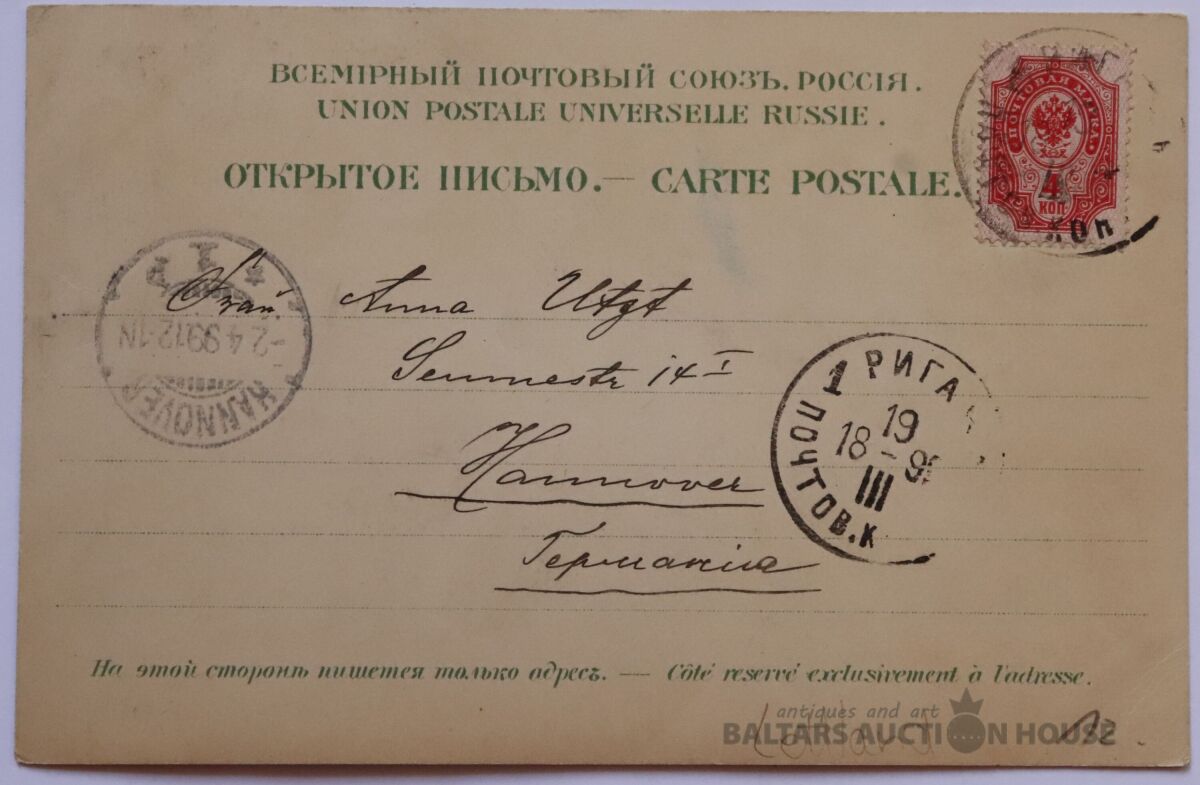 ВСЕМІРНЫЙ ПОЧТОВЫЙ СОЮЗЪ. РОССІЯ.
UNION POSTALE UNIVERSELLE RUSSIE.
ОТКРЫТОЕ ПИСЬМО.— CARTE POSTALE.
ПОЧТОВАЯ МАРКА
4
КОП
Frau Anna Utgt
Sennestr 14 I
Hannover
Германія
HANNOVER
-2.4.99.12-1N
1
1 РИГА
19
18-9
III
ПОЧТОВ.К
На этой сторонѣ пишется только адресъ. — Côté reservé exclusirement à l'adresse.
antiques and art
BALTARS AUCTION HOUSE